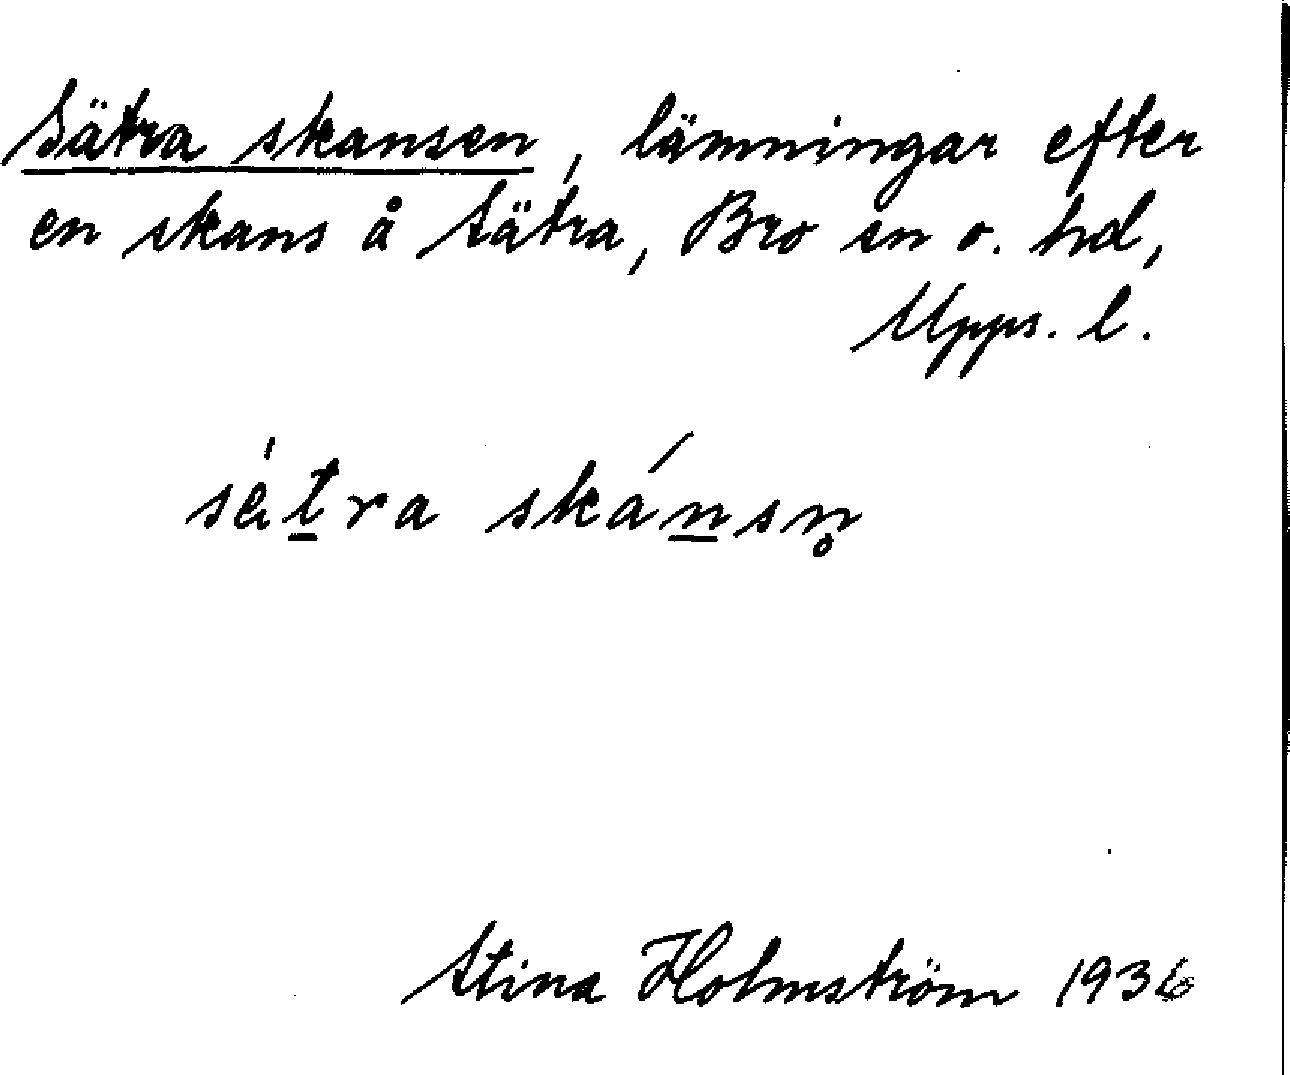 Sätra skansen, lämningar efter
en skans å Sätra, Bro sn o. hd,
Upps. l.
sè̱tra skánsn̥
Stina Holmström 1936